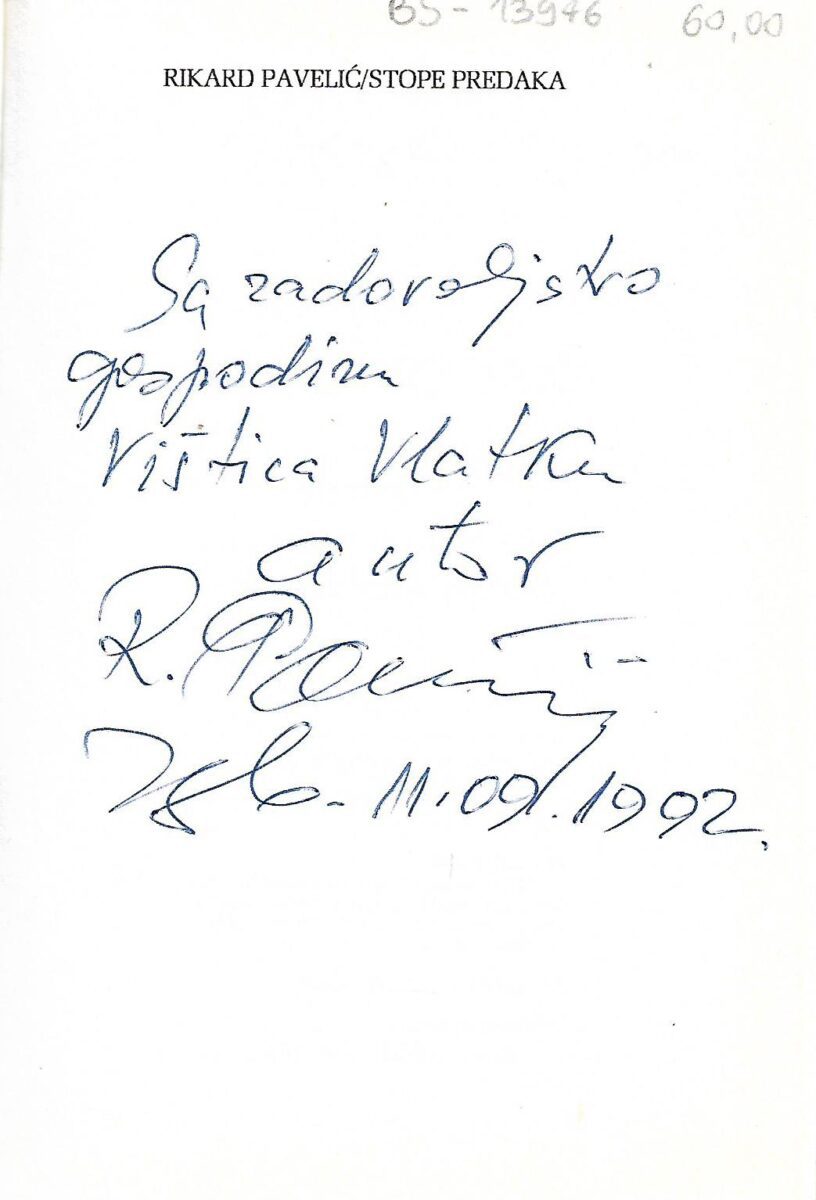 BS - 13976 60,00
RIKARD PAVELIĆ/STOPE PREDAKA
Sa zadovoljstvo
gospodinu
Vištica Vlatku
autor
R. Pavelić
Zgb. 11.09.1992.